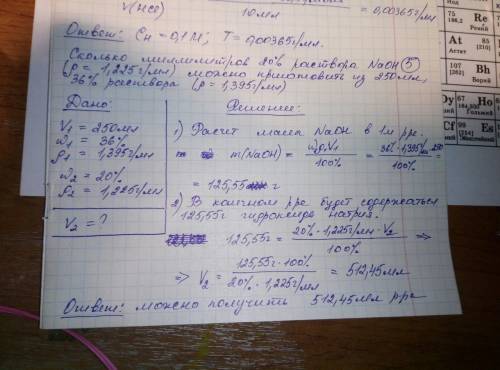 V(HCl) 10 мл = 0,00365 г/мл
Ответ: Cн = 0,1 М; T = 0,00365 г/мл.
Сколько миллиметров 20% раствора NaOH (5)
(ρ = 1,225 г/мл) можно приготовить из 250 мл
36% раствора (ρ = 1,395 г/мл)
Дано:
V1 = 250 мл
ω1 = 36%
ρ1 = 1,395 г/мл
ω2 = 20%
ρ2 = 1,225 г/мл
V2 = ?
Решение:
1) Расчет массы NaOH в 1м рре.
m(NaOH) = ω1ρ1V1 / 100% = 36% · 1,395 г/мл · 250 / 100% =
= 125,55 г
2) В конечном рре будет содержаться
125,55 г гидроксида натрия.
125,55 г = 20% · 1,225 г/мл · V2 / 100% ⇒
⇒ V2 = 125,55 г · 100% / 20% · 1,225 г/мл = 512,45 мл
Ответ: можно получить 512,45 мл рре
75
186,2
Re
Рений
At
85
(210)
Астат
107
(262)
Bh
Борий